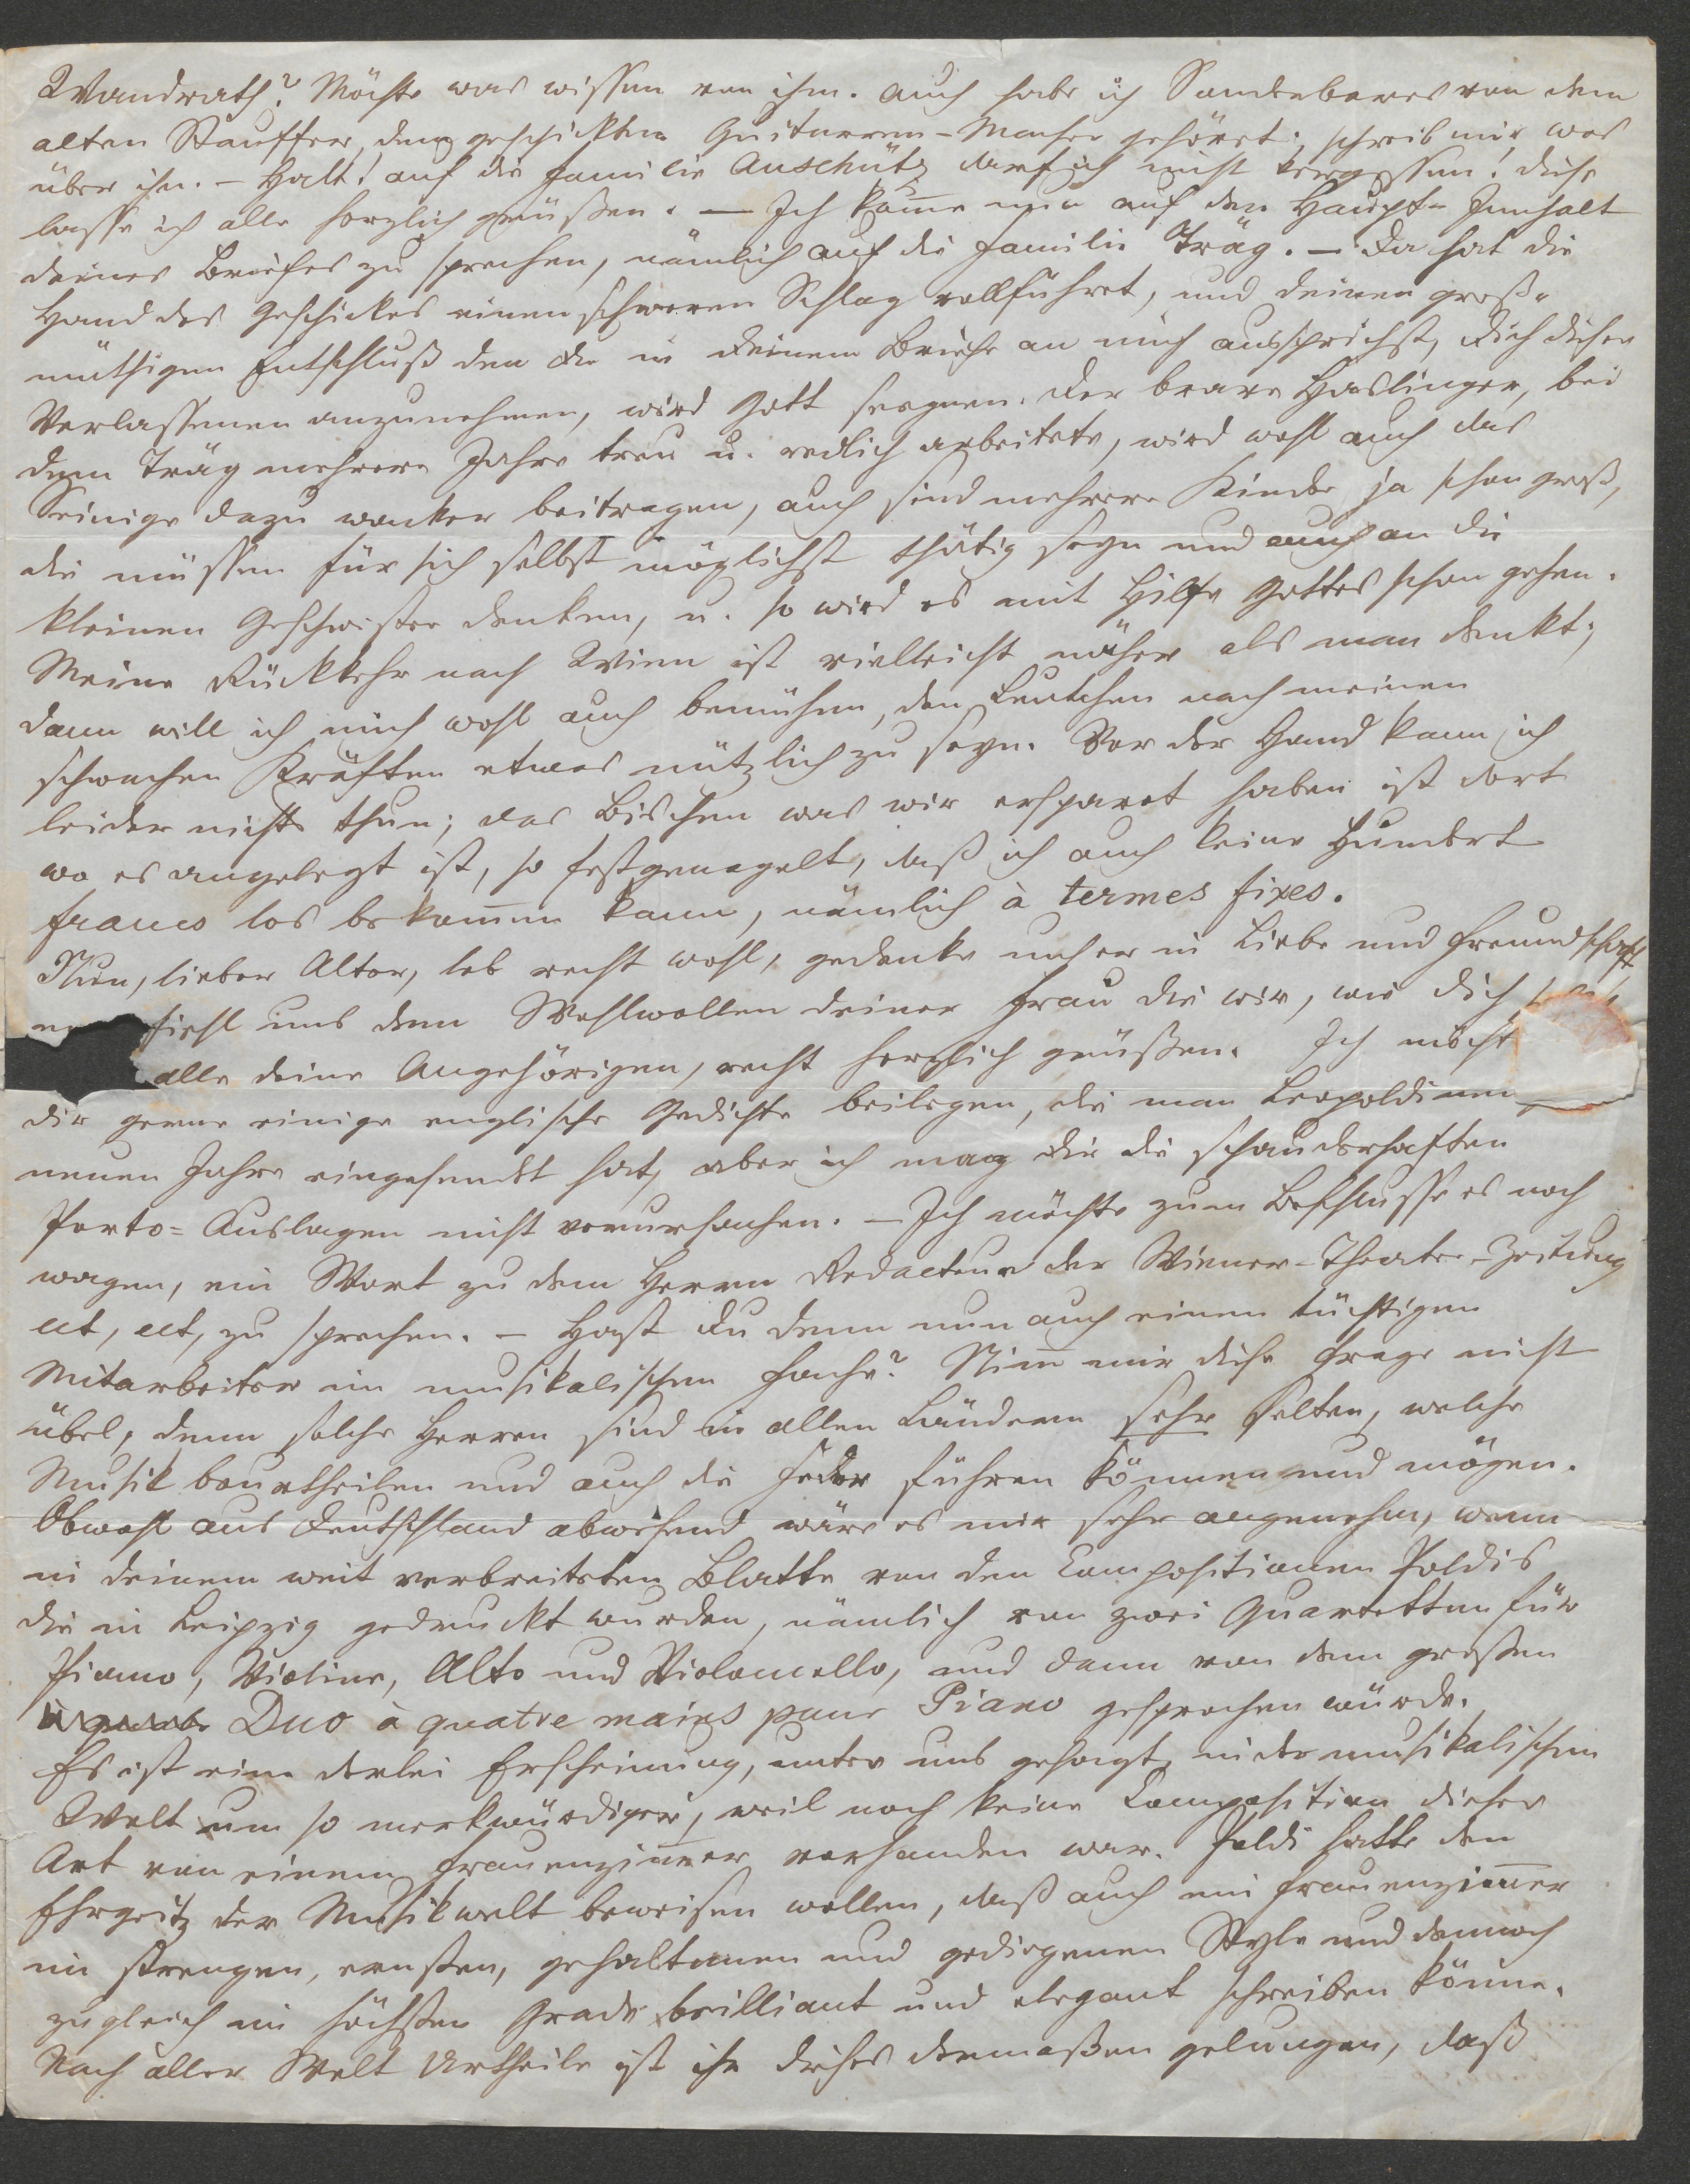 Wandrath? Möchte was wissen von ihm. Auch habe ich Sonderbares von dem
alten Stauffer, dem geschickten Guitarren-Macher gehöret; schreib mir was
über ihn. – Halt! auf die Familie Anschütz darf ich nicht vergessen! diese
lasse ich alle herzlich grüßen. – Ich kom̅e nun auf den Haupt-Innhalt
deines Briefes zu sprechen, nämlich auf die Familie Träg. – Da hat die
Hand des Geschickes einen schweren Schlag vollführet, und deinen groß-
müthigen Entschluß den du in deinem Briefe an mich aussprichst, dich dieser
Verlassenen anzunehmen, wird Gott seegnen. Der brave Haslinger, bei
dem Träg mehrere Jahre treu u. redlich arbeitete, wird wohl auch das
Seinige dazu wacker beitragen, auch sind mehrere Kinder ja schon groß,
die müssen für sich selbst möglichst thätig seyn und auch an die
kleinen Geschwister denken, u. so wird es mit Hilfe Gottes schon gehen.
Meine Rückkehr nach Wien ist vielleicht näher als man denkt;
dann will ich mich wohl auch bemühen, den Leutchen nach meinen
schwachen Kräften etwas nützlich zu seyn. Vor der Hand kann ich
leider nichts thun; das Bischen was wir ersparet haben ist dort
wo es angelegt ist, so festgenagelt, daß ich auch keine Hundert
francs los bekom̅en kann, nämlich à termes fixes.
Nun, lieber Alter, leb recht wohl, gedenke unser in Liebe und Freundschaft
fiehl uns dem Wohlwollen deiner Frau die wir, wie dich
alle deine Angehörigen, recht herzlich grüßen. Ich möcht
dir gerne einige englische Gedichte beilegen, die man Leopoldinen
neuen Jahre eingesendet hat, aber ich mag dir die schauderhaften
Porto-Auslagen nicht verursachen. – Ich möchte zum Beschlusse es noch
wagen, ein Wort zu dem Herrn Redacteur der Wiener-Theater-Zeitung
ect, ect, zu sprechen. – Hast du denn nun auch einen tüchtigen
Mitarbeiter im musikalischen Fache? Nim̅ mir diese Frage nicht
übel, denn solche Herren sind in allen Ländern sehr selten, welche
Musik beurtheilen und auch die Feder führen können und mögen.
Obwohl aus Deutschland abwesend wäre es mir sehr angenehm, wenn
in deinem weit verbreiteten Blatte von den Compositionen Poldis
die in Leipzig gedruckt wurden, nämlich von zwei Quartetten für
Piano, Violine, Alto und Violoncello, und dann von dem großen
à quatre Duo à quatre mains pour Piano gesprochen würde.
Es ist eine derlei Erscheinung, unter uns gesagt, in der musikalischen
Welt um so merkwürdiger, weil noch keine Composition dieser
Art von einem Frauenzim̅er vorhanden war. Poldi hatte den
Ehrgeitz der Musikwelt beweisen wollen, daß auch ein Frauenzim̅er
im strengen, ernsten, gehaltenen und gediegenen Style und dennoch
zugleich im höchsten Grade brilliant und elegant schreiben könne.
Nach aller Welt Urtheile ist ihr dieses dermaßen gelungen, daß